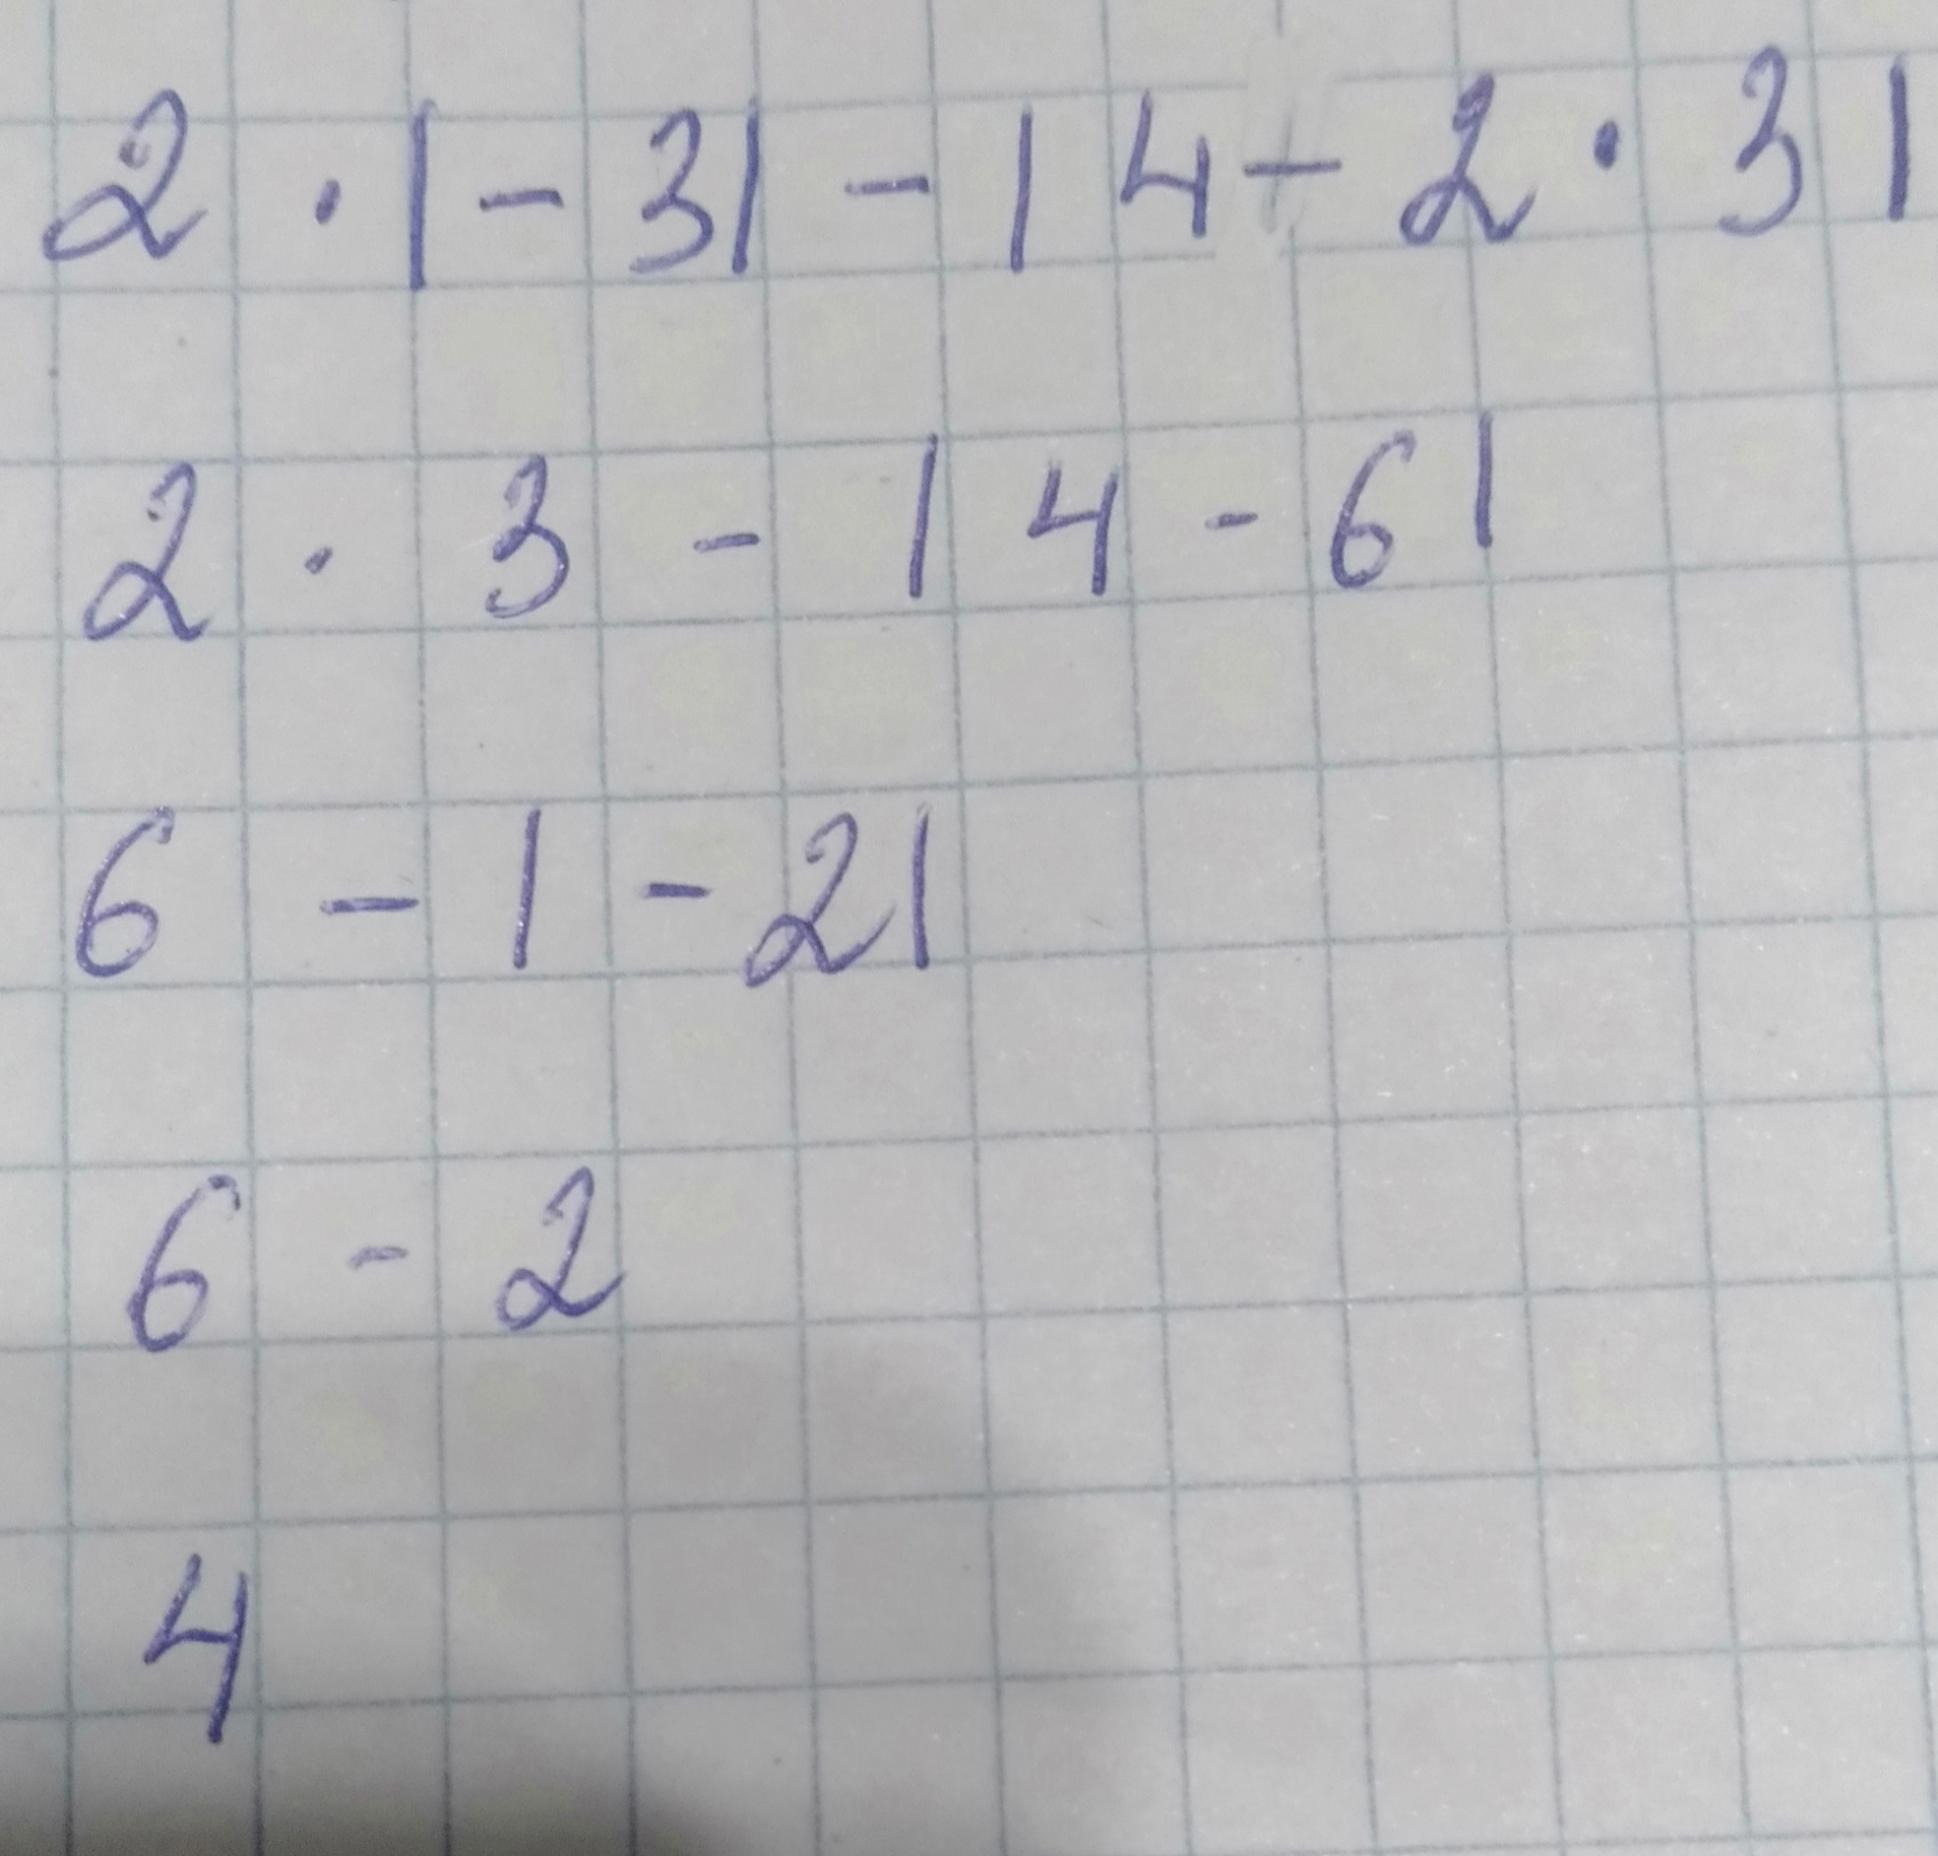 2 · |-3| - |4 - 2 · 3|
2 · 3 - |4 - 6|
6 - |-2|
6 - 2
4